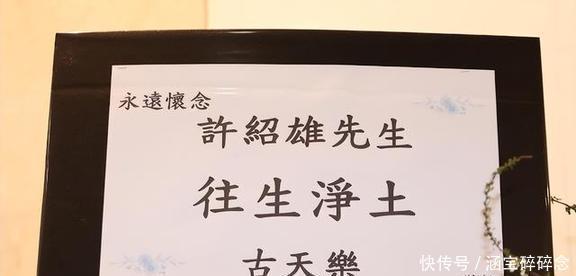 永遠懷念
許紹雄先生
往生淨土
古天樂
快传号／涵宝碎碎念